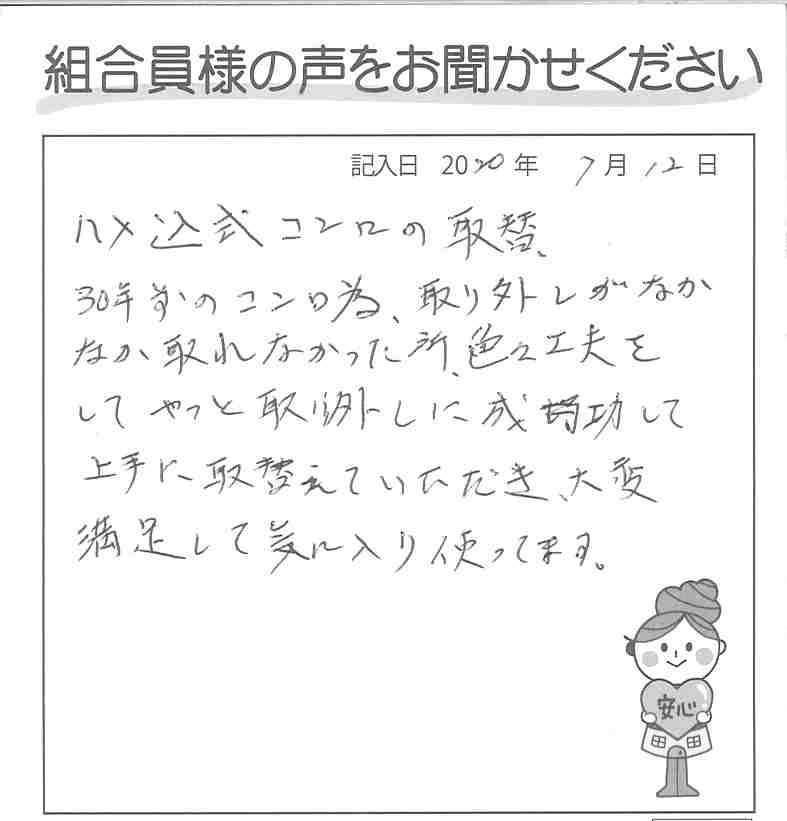 組合員様の声をお聞かせください
記入日 2020年 7月12日
ハメ込式コンロの取替、
30年前のコンロ為、取り外しがなか
なか取れなかった所、色々工夫を
してやっと取り外しに成功して
上手に取替えていただき、大変
満足して気に入り使ってます。
安心